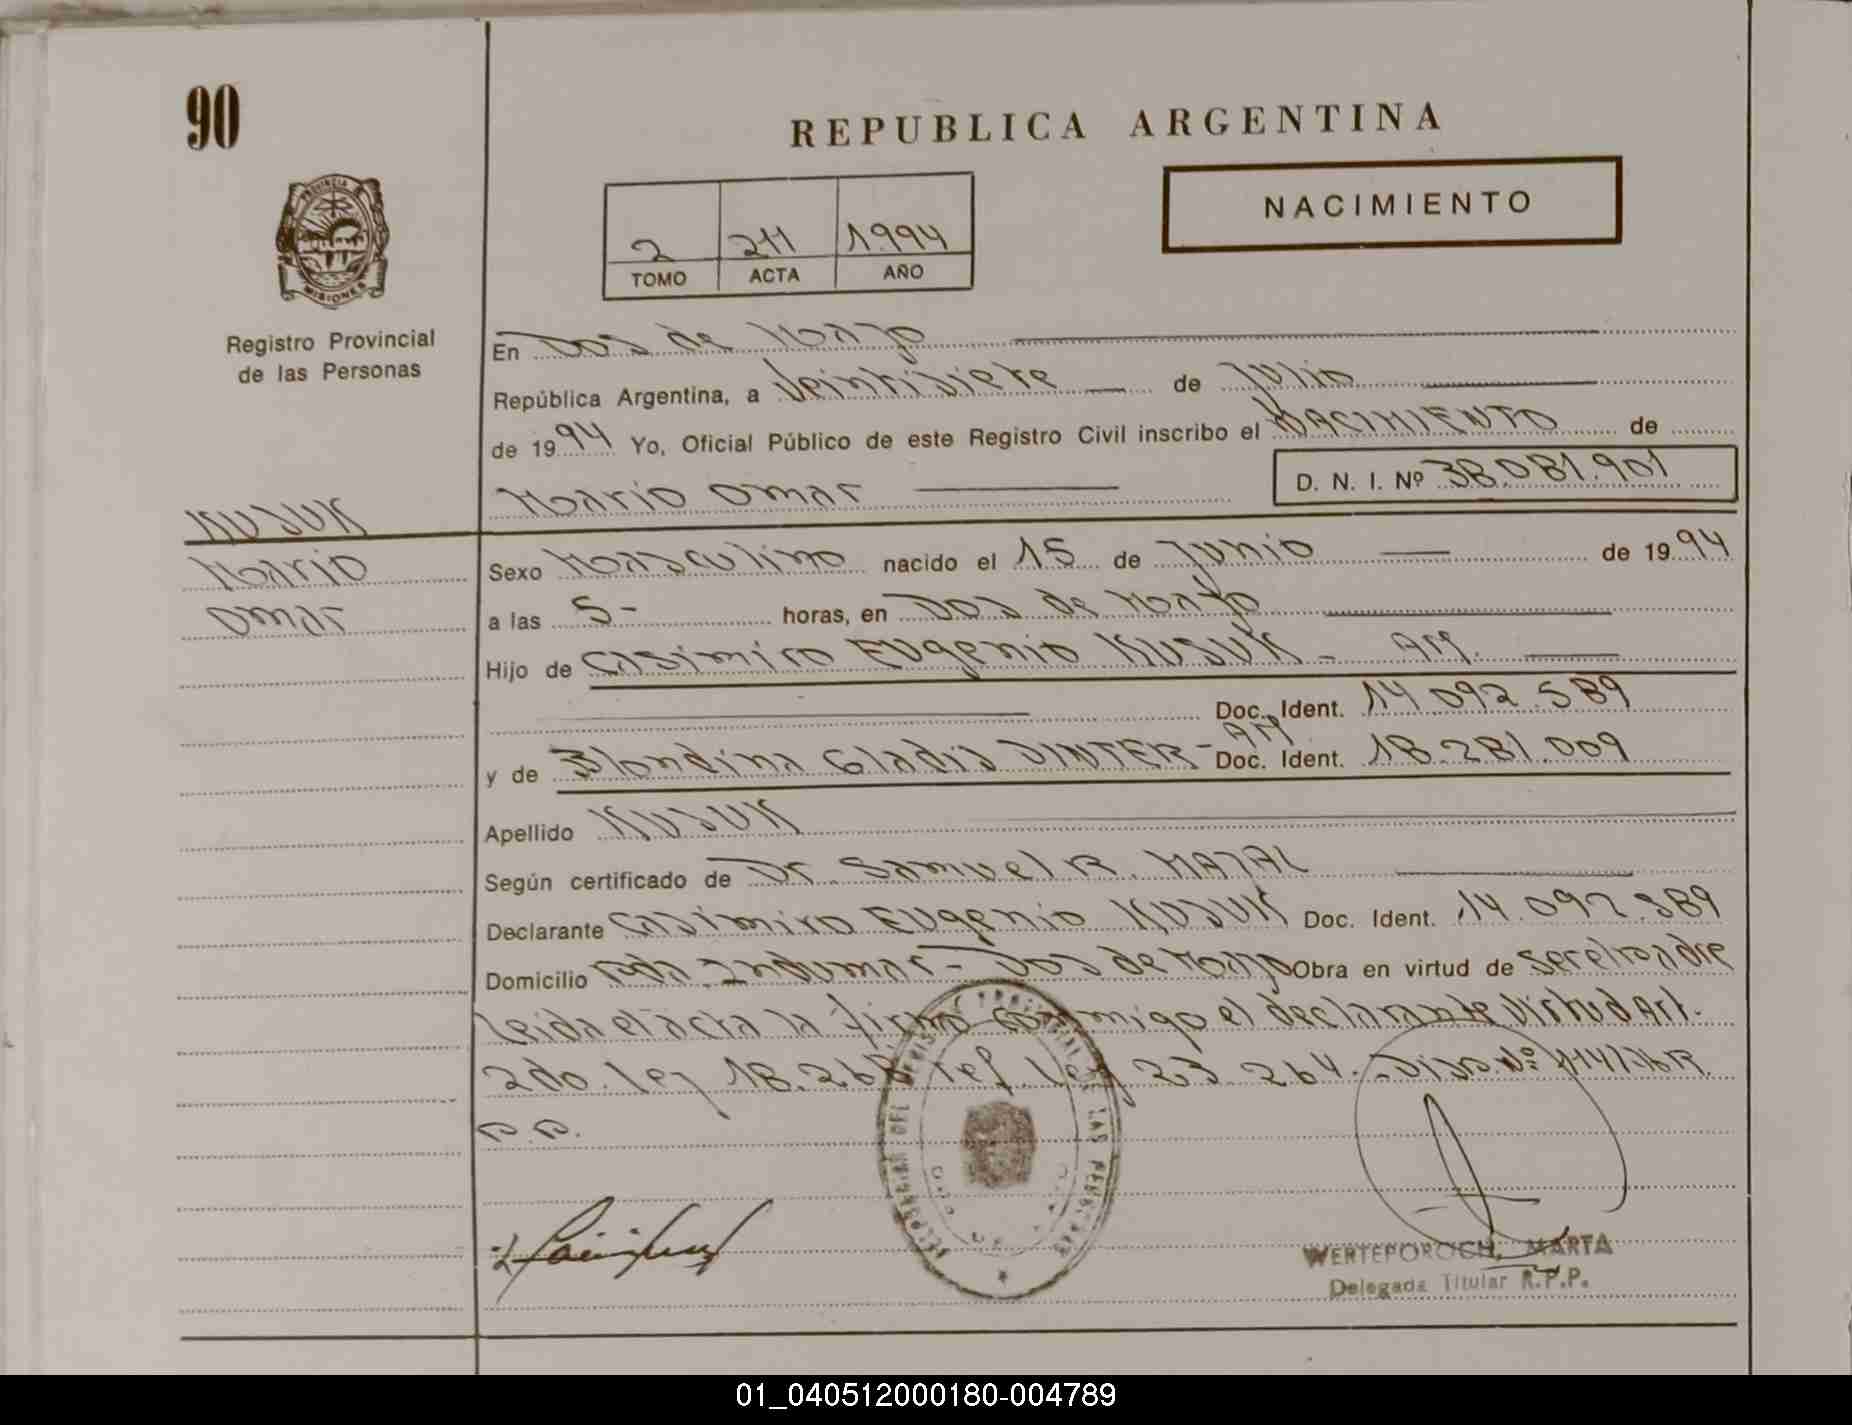 90
REPUBLICA ARGENTINA
NACIMIENTO
2 211 1994
TOMO ACTA AÑO
PROVINCIA
MISIONES
Registro Provincial
de las Personas
En Dos de Mayo
República Argentina, a veintisiete de Julio
de 1994 Yo, Oficial Público de este Registro Civil inscribo el NACIMIENTO de
Mario Omar D. N. I. Nº 38.081.901
KUSUK
Mario
Omar
Sexo Masculino nacido el 15 de Junio de 1994
a las 5- horas, en Dos de Mayo
Hijo de Casimiro Eugenio KUSUK - AM.
Doc. Ident. 14.092.589
y de Blondina Gladis DINTER - AM Doc. Ident. 18.281.009
Apellido KUSUK
Según certificado de Dr. Samuel R.
Declarante Casimiro Eugenio KUSUK Doc. Ident. 14.092.589
Domicilio - Dos de Mayo Obra en virtud de ser el padre
leida el acta la firma conmigo el declarante Virtud Art.
2do. Ley 18.248 ref Ley 23.264. Disp. Nº
R.P.
WERTEPOROCH, MARTA
Delegada Titular R.P.P.
01_040512000180-004789